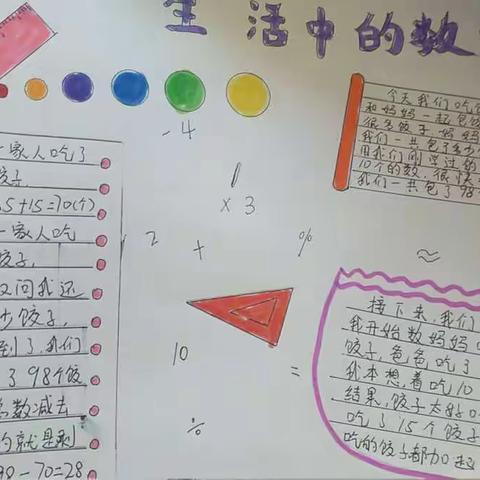 生活中的数
今天我们吃
和妈妈一起包饺
很多饺子妈妈
我们一共包了多少
用我们刚学过的
10个的数,很快
我们一共包了98
-4
×3
2
+
%
≈
10
=
÷
一家人吃了
饺子,
5+15=70(个)
一家人吃
饺子,
又问我还
少饺子,
到了,我们
了98个饺
总数减去
的就是剩
-70=28
接下来,我们
我开始数妈妈
饺子,爸爸吃了
我本想着吃10
结果,饺子太好
吃了15个饺子
吃的饺子都加起